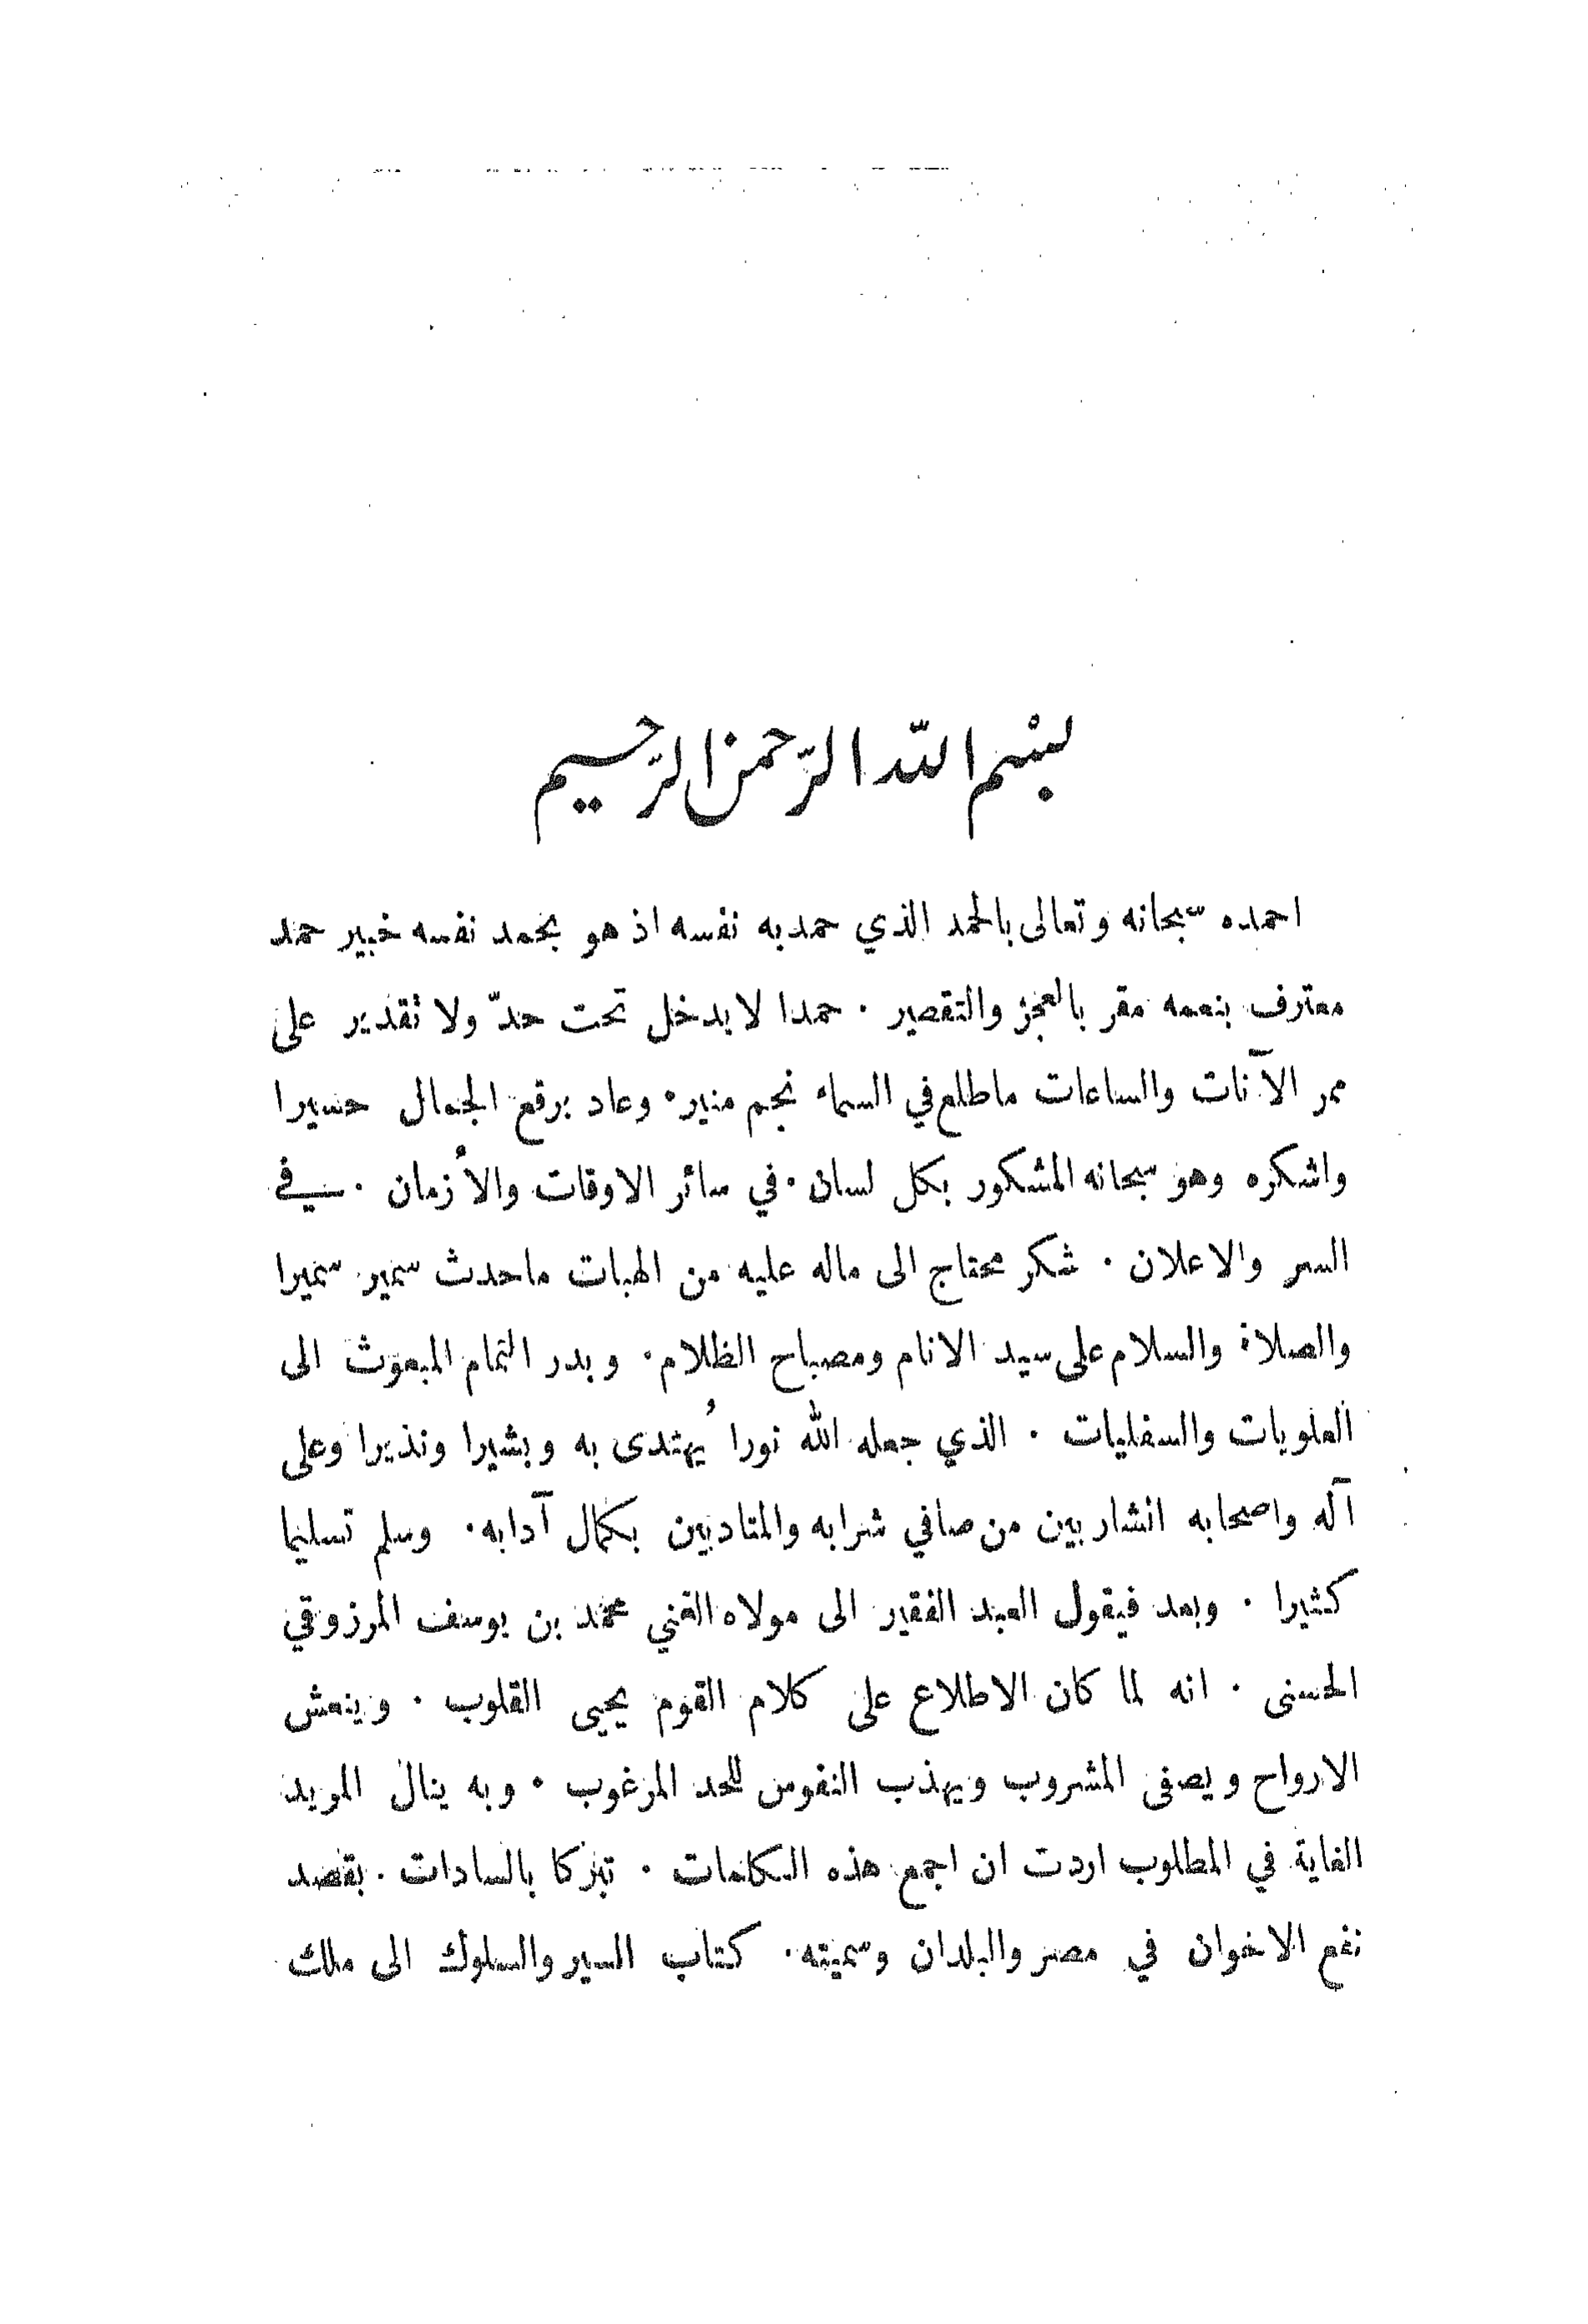 بسم الله الرحمن الرحيم
احمده سبحانه وتعالى بالحمد الذي حمد به نفسه اذ هو بحمد نفسه خبير حمد
معترف بنعمه مقر بالعجز والتقصير . حمدا لا يدخل تحت حدّ ولا تقدير على
ممر الآنات والساعات ما طلع في السماء نجم منير . وعاد برقع الجمال حسيرا
واشكره وهو سبحانه المشكور بكل لسان . في سائر الاوقات والأزمان . في
السر والاعلان . شكر محتاج الى ماله عليه من الهبات ماحدث سمير سميرا
والصلاة والسلام على سيد الانام ومصباح الظلام . وبدر التمام المبعوث الى
العلويات والسفليات . الذي جعله الله نورا يُهتدى به وبشيرا ونذيرا وعلى
آله واصحابه الشاربين من صافي شرابه والمتادبين بكمال آدابه . وسلم تسليما
كثيرا . وبعد فيقول العبد الفقير الى مولاه الغني محمد بن يوسف المرزوقي
الحسنى . انه لما كان الاطلاع على كلام القوم يحيى القلوب . وينعش
الارواح ويصفى المشروب ويهذب النفوس للحد المرغوب . وبه ينال المريد
الغاية في المطلوب اردت ان اجمع هذه الكلمات . تبركا بالسادات . بقصد
نفع الاخوان في مصر والبلدان وسميته . كتاب السير والسلوك الى ملك